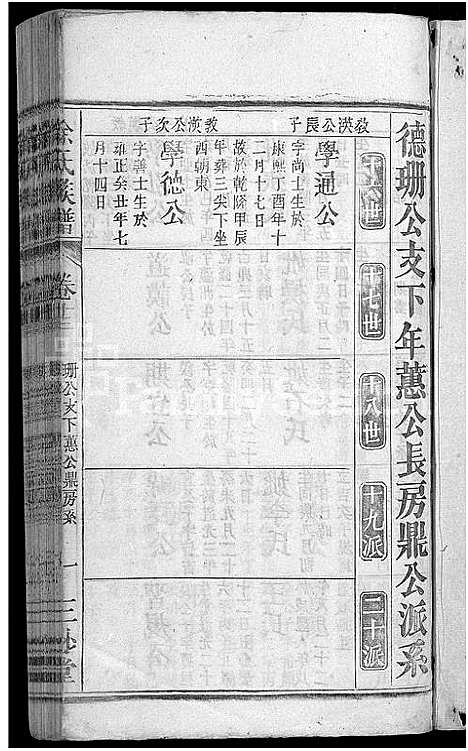 德珊公支下年蕙公長房鼎公派系
十六世
十七世
十八世
十九派
二十派
教渶公長子
學通公
字尚士生於
康熙丁酉年十
二月十七日
故於乾隆甲辰
年葬三尖下坐
西朝東
教渶公次子
學德公
字善士生於
雍正癸丑年七
月十四日
徐氏族譜
卷十三
珊公支下蕙公鼎房系
一